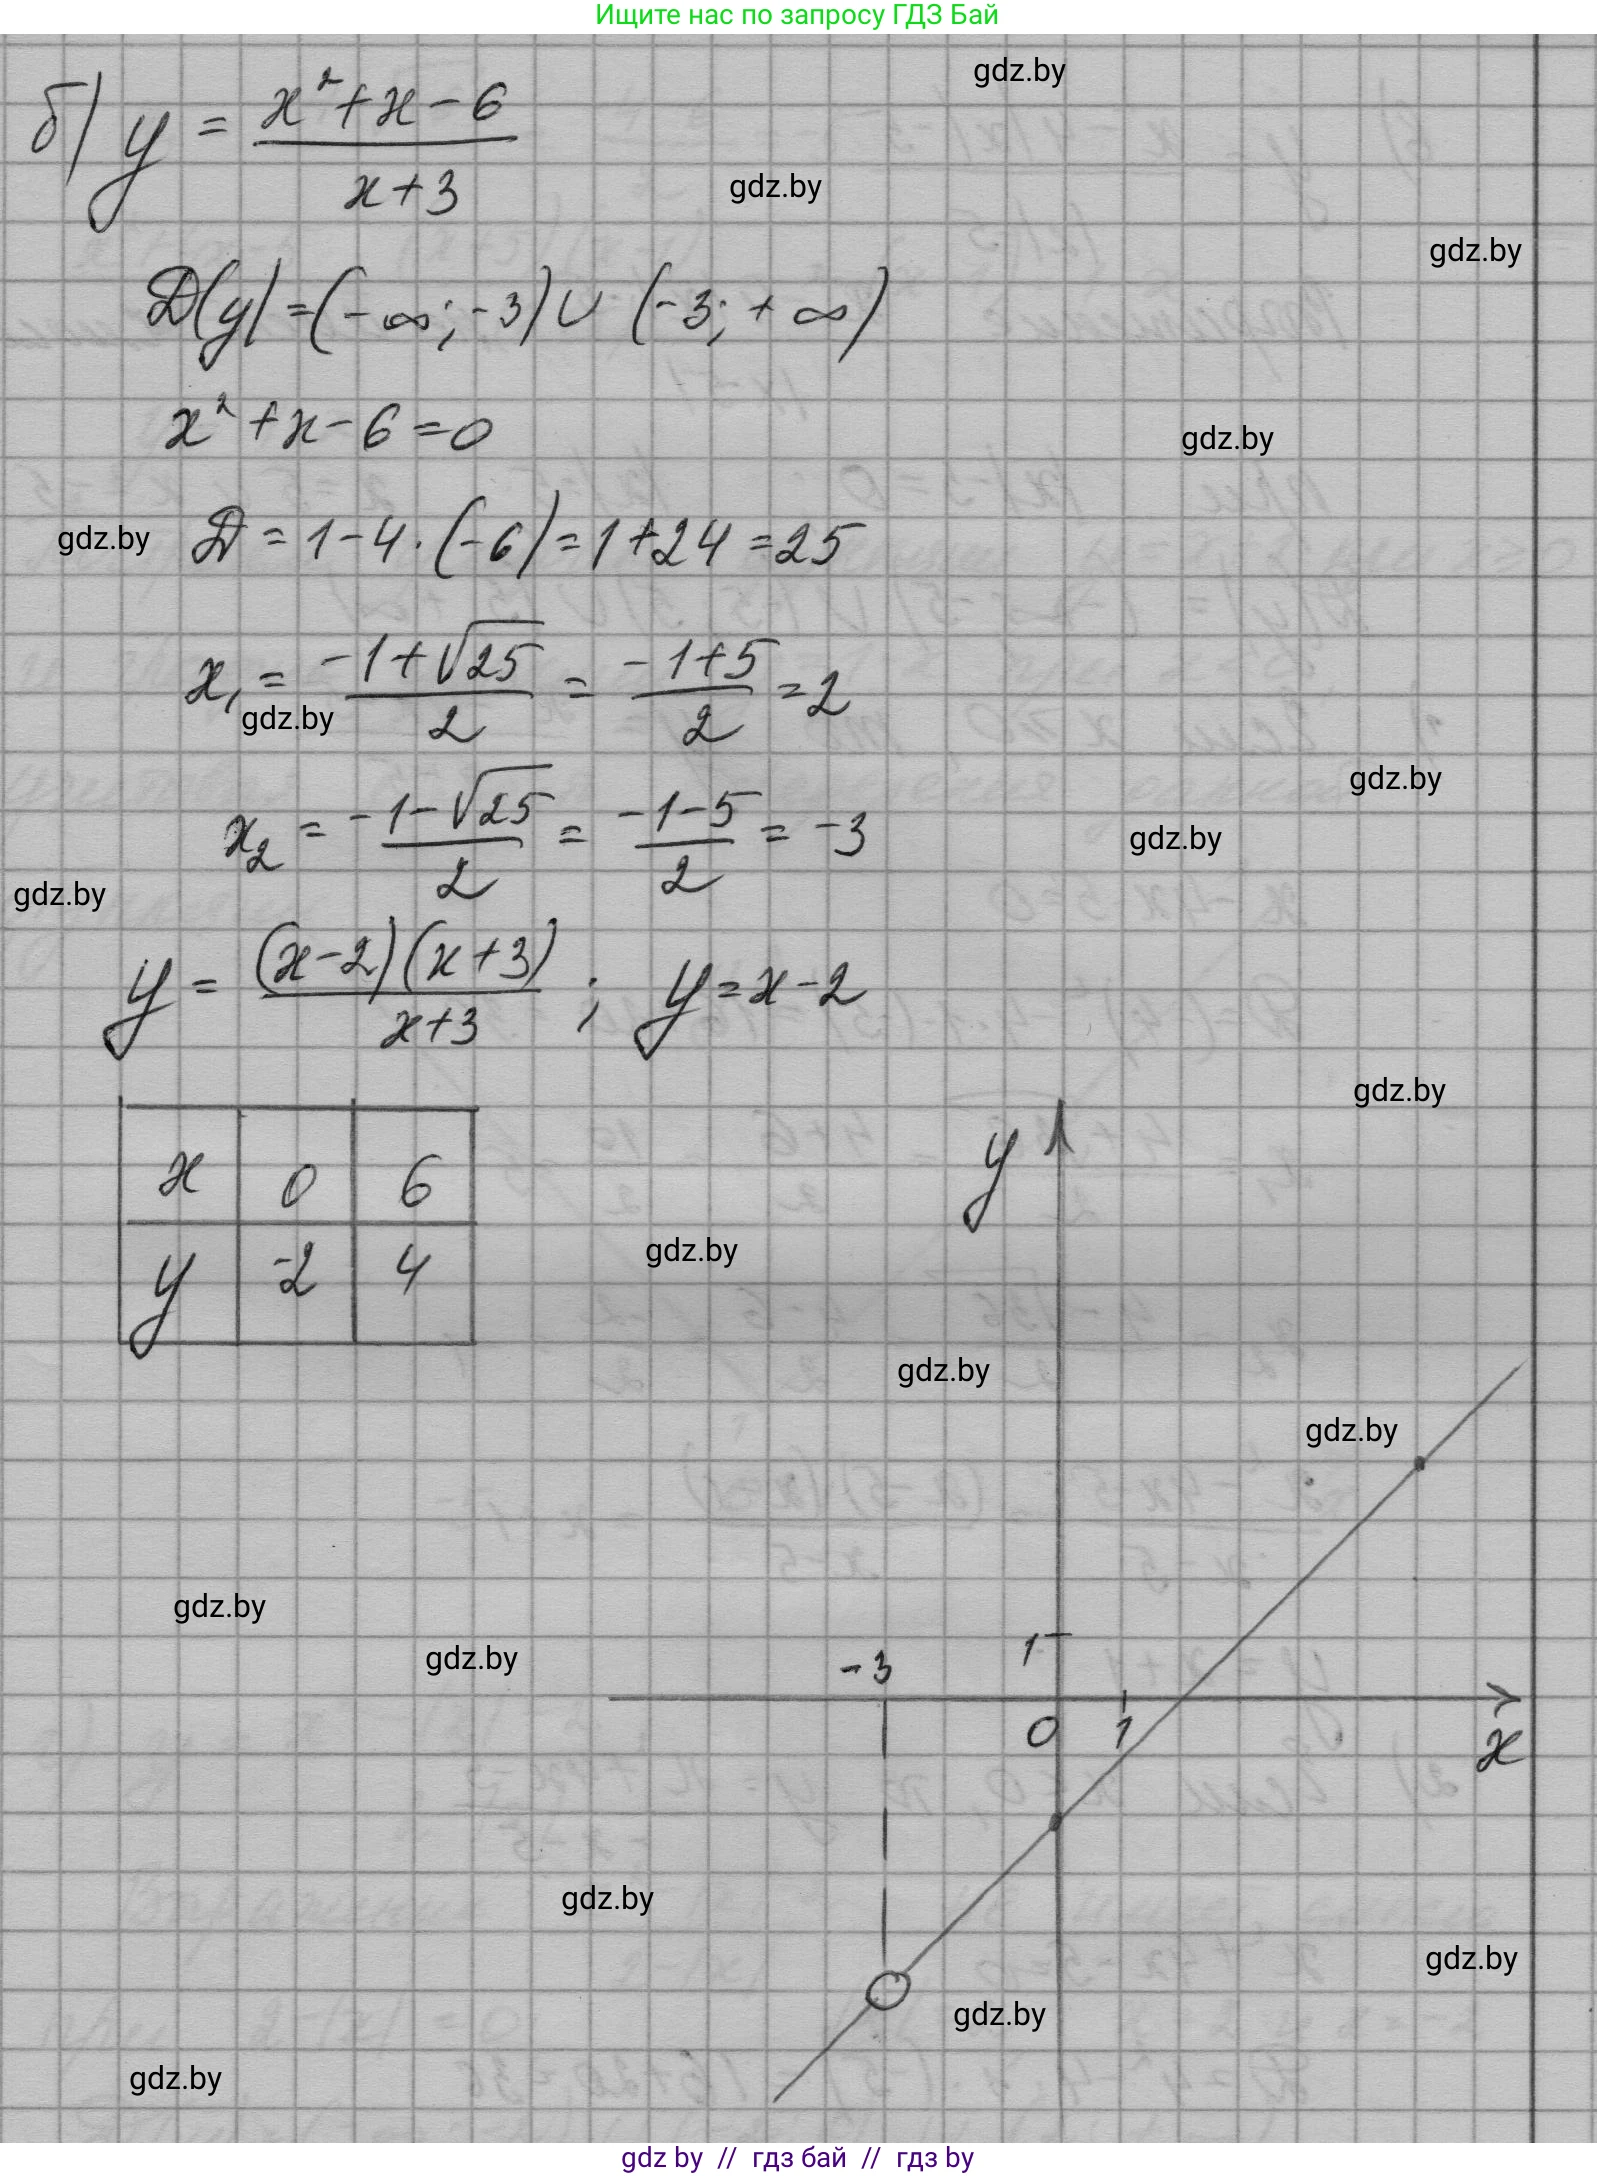 Ищите нас по запросу ГДЗ Бай
gdz.by
б) y = (x² + x - 6)/(x + 3)
gdz.by
gdz.by
D(y) = (-∞; -3) ∪ (-3; +∞)
x² + x - 6 = 0
gdz.by
gdz.by
D = 1 - 4 · (-6) = 1 + 24 = 25
x₁ = (-1 + √25)/2 = (-1 + 5)/2 = 2
gdz.by
gdz.by
x₂ = (-1 - √25)/2 = (-1 - 5)/2 = -3
gdz.by
gdz.by
y = (x - 2)(x + 3)/(x + 3) ; y = x - 2
gdz.by
x 0 6
y -2 4
y
gdz.by
gdz.by
gdz.by
gdz.by
gdz.by
-3 1
0 1 x
gdz.by
gdz.by
gdz.by
gdz.by
gdz by // гдз бай // гдз by